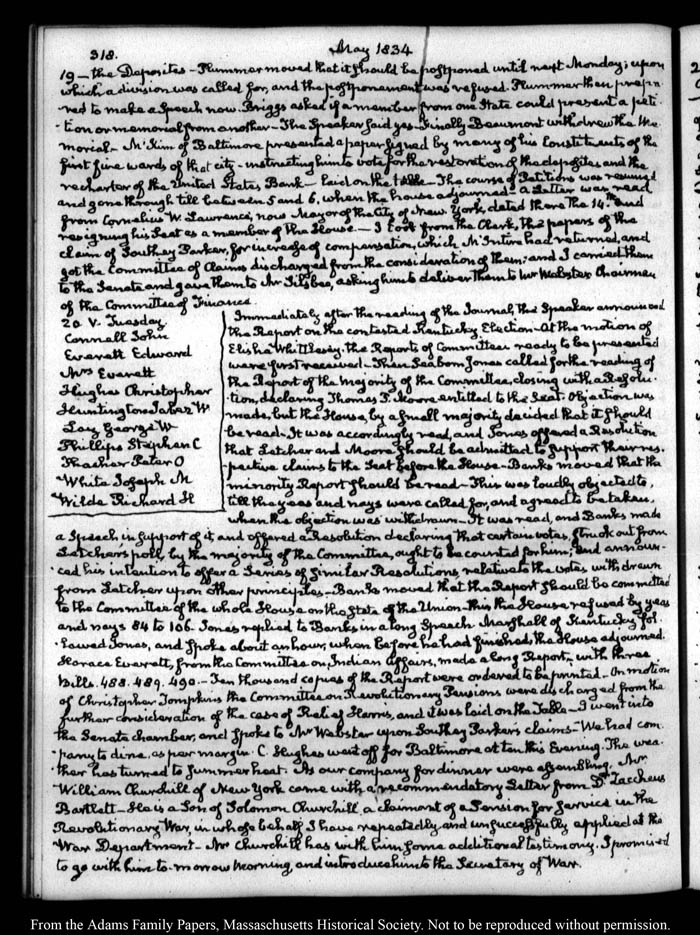 318.
May 1834
19 – the Deposites – Plummer moved that it should be postponed until next Monday; upon
which a division was called for, and the postponement was refused. Plummer then prepa-
red to make a Speech now. Briggs asked if a member from one State could present a peti-
tion or memorial from another – The Speaker said yes – Finally Beaumont withdrew the me-
morial – McKim of Baltimore presented a paper signed by many of his Constituents of the
first five wards of that city – instructing him to vote for the restoration of the deposites and the
recharter of the United States Bank – laid on the table – The course of Petitions was resumed
and gone through till between 5 and 6, when the house adjourned – a Letter was read
from Cornelius W. Lawrence, now Mayor of the City of New York, dated there the 14th and
resigning his Seat as a member of the House – I took from the Clerk, the papers of the
claim of Southey Parker, for increase of compensation, which McIntire had returned, and
got the Committee of Claims discharged from the consideration of them; and I carried them
to the Senate and gave them to Mr Silsbee, asking him to deliver them to Mr Webster Chairman
of the Committee of Finance.
20. V. Tuesday
Connell John
Everett Edward
Mrs Everett
Hughes Christopher
Huntington Jabez W
Lay George W
Phillips Stephen C
Thacher Peter O
White Joseph M
Wilde Richard H
Immediately after the reading of the Journal, the Speaker announced
the Report on the contested Kentucky Election – At the motion of
Elisha Whittlesey, the Reports of Committees ready to be presented
were first received – Then Seaborn Jones called for the reading of
the Report of the majority of the Committee, closing with a Resolu-
tion, declaring Thomas P. Moore entitled to the Seat. Objection was
made, but the House, by a small majority decided that it should
be read – It was accordingly read, and Jones offered a Resolution
that Letcher and Moore should be admitted to support their res-
pective claims to the Seat before the House – Banks moved that the
minority Report should be read – This was loudly objected to,
till the yeas and nays were called for, and agreed to be taken,
when the objection was withdrawn – It was read, and Banks made
a Speech in support of it and offered a Resolution declaring that certain votes, struck out from
Letcher's poll, by the majority of the Committee, ought to be counted for him; and announ-
ced his intention to offer a Series of similar Resolutions, relative to the votes withdrawn
from Letcher upon other principles – Banks moved that the Report should be committed
to the Committee of the whole House on the State of the Union – this the House refused by yeas
and nays 84 to 106. Jones replied to Banks in a long Speech. Marshall of Kentucky fol-
lowed Jones, and spoke about an hour, when before he had finished, the House adjourned.
Horace Everett, from the Committee on Indian Affairs, made a long Report, with three
Bills. 488. 489. 490. – Ten thousand copies of the Report were ordered to be printed – On motion
of Christopher Tompkins the Committee on Revolutionary Pensions were discharged from the
further consideration of the case of Relief Harris, and it was laid on the Table – I went into
the Senate chamber, and spoke to Mr Webster upon Southey Parker's claims – We had com-
pany to dine, as per margin. C. Hughes went off for Baltimore at ten this Evening. The wea-
ther has turned to Summer heat. As our company for dinner were assembling, Mr
William Churchill of New York came with a recommendatory Letter from Dr Zaccheus
Bartlett – He is a Son of Solomon Churchill, a claimant of a Pension for service in the
Revolutionary War, in whose behalf I have repeatedly and unsuccessfully applied at the
War Department – Mr Churchill has with him some additional testimony. I promised
to go with him to-morrow morning, and introduce him to the Secretary of War.
From the Adams Family Papers, Massachusetts Historical Society. Not to be reproduced without permission.